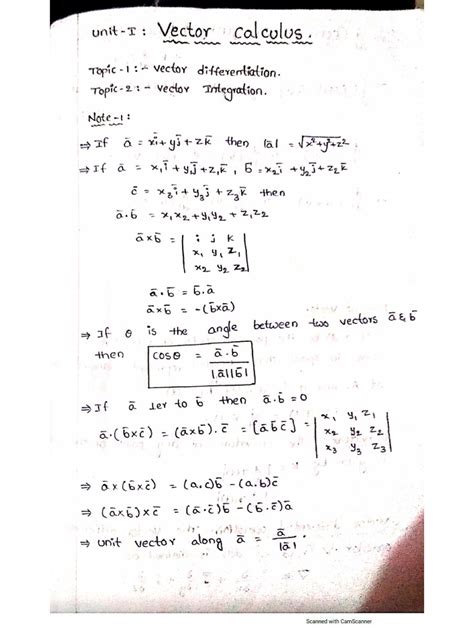 Unit-I : Vector Calculus.
Topic-1 :- Vector differentiation.
Topic-2 :- Vector Integration.
Note-1:
⇒ If ā = xī + yj̄ + zk̄ then |ā| = √x²+y²+z²
⇒ If ā = x₁ī + y₁j̄ + z₁k̄ , b̄ = x₂ī + y₂j̄ + z₂k̄
c̄ = x₃ī + y₃j̄ + z₃k̄ then
ā·b̄ = x₁x₂ + y₁y₂ + z₁z₂
ā×b̄ = | i j k
x₁ y₁ z₁
x₂ y₂ z₂ |
ā·b̄ = b̄·ā
ā×b̄ = -(b̄×ā)
⇒ If θ is the angle between two vectors ā & b̄
then cosθ = ā·b̄ / |ā||b̄|
⇒ If ā ⊥er to b̄ then ā·b̄ = 0
ā·(b̄×c̄) = (ā×b̄).c̄ = [āb̄c̄] = | x₁ y₁ z₁
x₂ y₂ z₂
x₃ y₃ z₃ |
⇒ ā×(b̄×c̄) = (a.c)b̄ - (a.b)c̄
⇒ (ā×b̄)×c̄ = (ā·c̄)b̄ - (b̄·c̄)ā
⇒ unit vector along ā = ā / |ā| .
Scanned with CamScanner